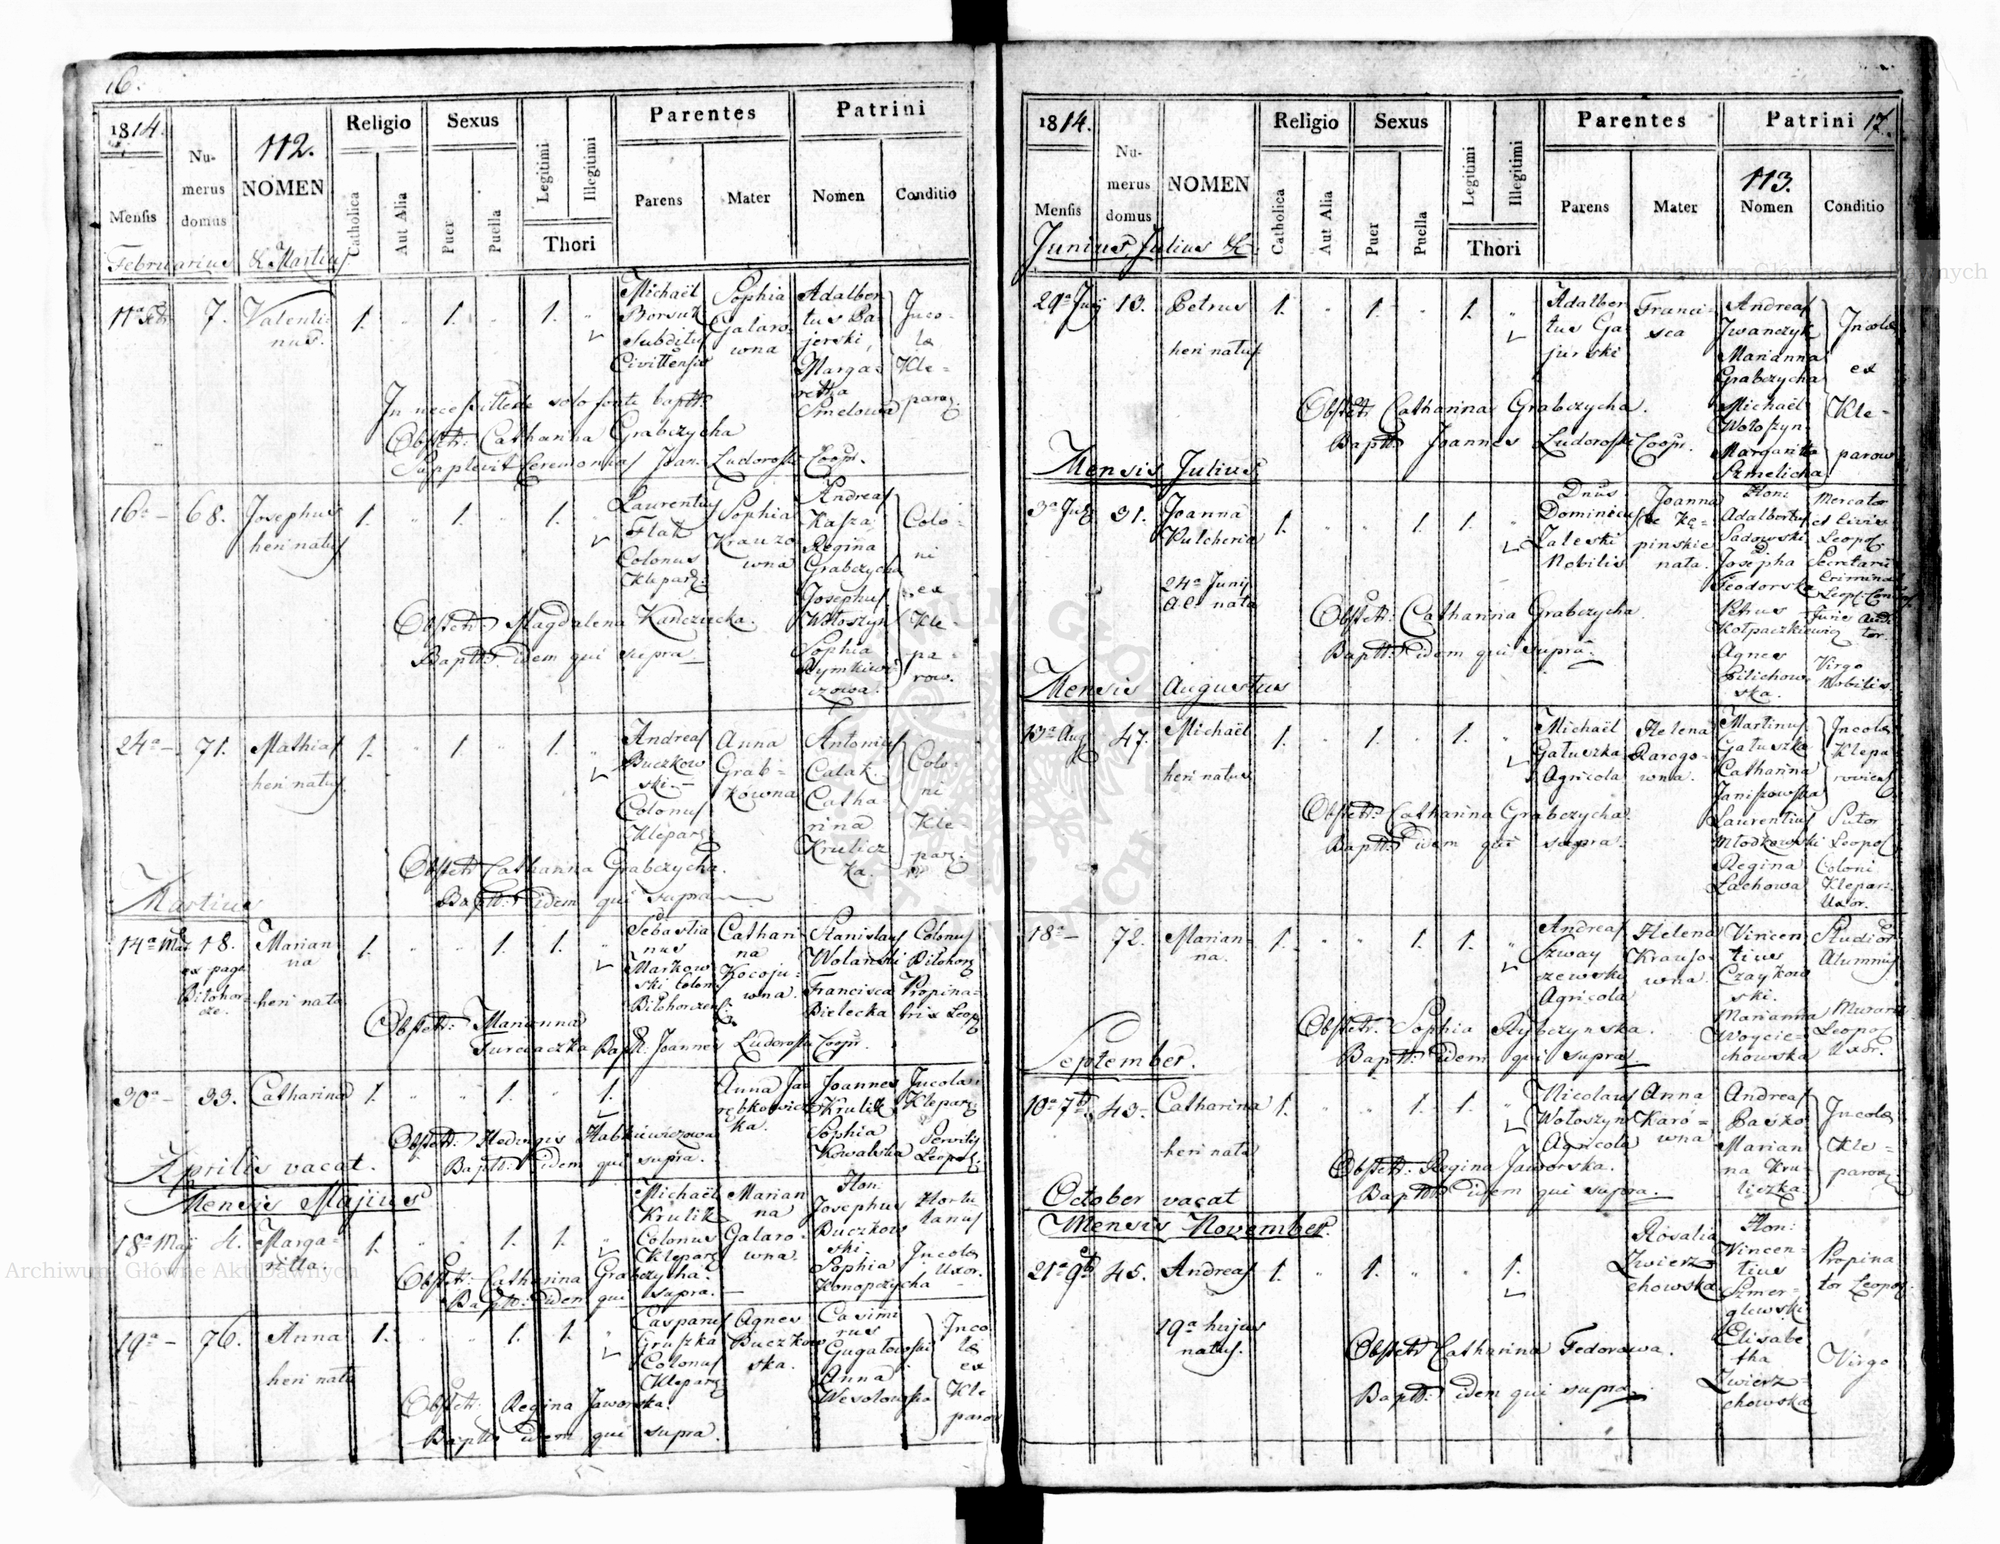 16.
1814.
Mensis
Numerus domus
112.
NOMEN
Religio
Catholica
Aut Alia
Sexus
Puer
Puella
Legitimi
Illegitimi
Thori
Parentes
Parens
Mater
Patrini
Nomen
Conditio
Februarius & Martius
11a Feb
7.
Valenti-
nus.
1.
1.
1.
Michaël
Borsuk
Subditus
Civittensis
Sophia
Galaro-
wna
Adalber
tus Ba-
jerski,
Marga-
retha
Smelowa
Inco-
læ
Kle-
paroz.
In necessittede solo fonte baptt.
Obstetr: Catharina Grabczycha
Supplevit Ceremonias Joan: Ludoroski Coopr.
16a —
68.
Josephus
heri natus
1.
1.
1.
Laurentius
Flak
Colonus
Klepar:
Sophia
Krauzo
wna
Andreas
Kasza
Regina
Grabczycha
Josephus
Wołoszyn
Sophia
Rymkiewi
czowa.
Colo-
ni
ex
Kle-
pa-
row.
Obstetr: Magdalena Kanczucka.
Baptt: idem qui supra —
24a —
71.
Mathias
heri natus
1.
1.
1.
Andreas
Buczkow
ski. —
Colonus
Klepar:
Anna
Grab-
kowna
Antonius
Calak.
Catha-
rina
Krulicz
ka.
Colo-
ni
Kle-
par:
Obstetr: Catharina Grabczycha.
Baptt: idem qui supra —
Martius
14a Mar
18.
ex pago
Biłohor-
cze.
Marian
na
heri nata
1.
1.
1.
Sebastia
nus
Markow
ski Colon
Biłohorzen
Cathari
na
Kocoju-
wna.
Stanislaus
Wolański
Francisca
Bielecka
Colonus
Biłohorz
Propina-
trix Leop
Obstetr: Marianna
Turczaczka Baptt: Joannes Ludoroski Coopr.
30a —
33.
Catharina
1.
1.
1.
Anna Ja
rębkowicz
ka.
Joannes
Krulik
Sophia
Kowalska
Incolae
Klepar
Servilis
Leopol:
Obstetr: Hedvigis Habkiewiczowa
Baptt: idem qui supra.
Aprilis vacat.
Mensis Majius
18a Maij
4.
Marga-
ritta.
1.
1.
1.
Michaël
Krulik
Colonus
Klepar
Marian
na
Galaro-
wna.
Hon:
Josephus
Buczkow
ski,
Sophia
Konopczycha
Hortu
lanus
Incolæ
Uxor.
Obstetr: Catharina Grabczycha.
Baptt: idem qui supra. —
19a —
76.
Anna
heri nata
1.
1.
1.
Casparus
Gruszka
Colonus
Klepar
Agnes
Buczkow
ska.
Casimi
rus
Gugałowski
Anna
Wesołowska
Inco
læ
ex
Kle
parow
Obstetr: Regina Jaworska.
Baptt: idem qui supra.
17.
1814.
Mensis
Numerus domus
NOMEN
Religio
Catholica
Aut Alia
Sexus
Puer
Puella
Legitimi
Illegitimi
Thori
Parentes
Parens
Mater
Patrini
113.
Nomen
Conditio
Junius, Julius &c.
29a Junij
13.
Petrus
heri natus
1.
1.
1.
Adalber
tus Ga-
jurski
Franci-
sca
Andreas
Iwanczyk
Marianna
Grabczycha
Michaël
Wołoszyn.
Margaritta
Szmelicha
Incolæ
ex
Kle-
parow
Obstetr: Catharina Grabczycha.
Baptt: Joannes Ludoroski Coopr.
Mensis Julius
3a Julij
31.
Joanna
Pulcheria
24a Junij
a.c. nata
1.
1.
1.
Dnus
Dominicus
Zaleski
Nobilis
Joanna
de Kę-
pinskie
nata.
Hon:
Adalbertus
Sadowski
Josepha
Teodorska
Petrus
Kołpaczkiewicz
Agnes
Pilichow
ska.
Mercator
et Civis
Leopol
Secretarii
Criminal
Juris Audi
tor.
Virgo
Nobilis
Obstetr: Catharina Grabczycha
Baptt: idem qui supra.
Mensis Augustus
13a Aug
47.
Michaël
heri natus
1.
1.
1.
Michaël
Gałuszka
Agricola
Helena
Rarogo-
wna.
Martinus
Gałuszka
Catharina
Janiszowska
Laurentius
Młodkowski
Regina
Lachowa
Incolæ
Klepa
roviens
Sutor
Leopol
Coloni
Klepar:
Uxor.
Obstetr: Catharina Grabczycha.
Baptt: idem qui supra.
18a —
72.
Marian-
na.
1.
1.
1.
Andreas
Szway
szewski
Agricola
Helena
Krauso-
wna.
Vincen
tius
Czaykow
ski.
Marianna
Woycie-
chowska
Studior
Alumnus
Murarii
Leopol
Uxor.
Obstetr: Sophia Rybczynska.
Baptt: idem qui supra.
September.
10a 7b
43.
Catharina
heri nata
1.
1.
1.
Nicolaus
Wołoszyn
Agricola
Anna
Karó-
wna
Andreas
Baśko
Marian
na Kru-
liczka
Incolæ
Kle-
paroz
Obstetr: Regina Jaworska.
Baptt: idem qui supra.
October vacat
Mensis November.
21a 9b
45.
Andreas
19a hujus
natus.
1.
1.
1.
Rosalia
Zwierz
chowska
Hon:
Vincen-
tius
Szmer-
glewski
Elisabe
tha
Zwierz-
chowska
Propina
tor Leopol
Virgo
Obstetr: Catharina Fedorowa.
Baptt: idem qui supra
Archiwum Główne Akt Dawnych
Archiwum Główne Akt Dawnych